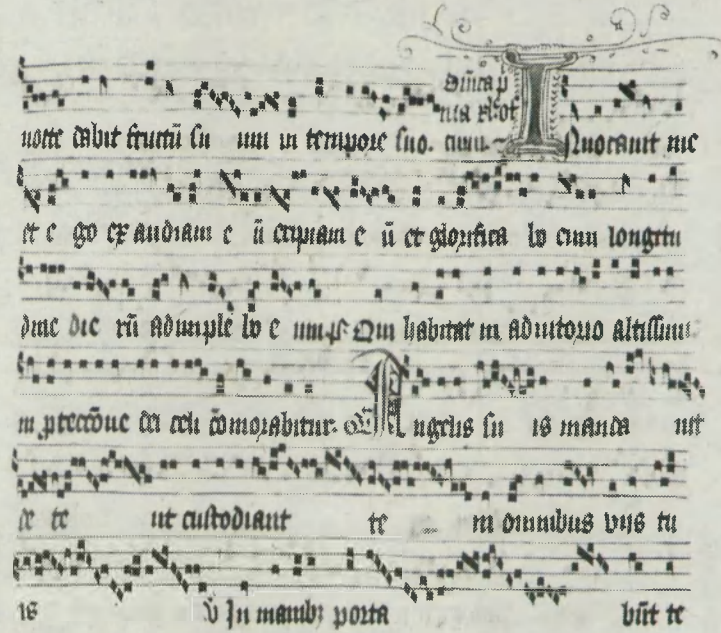 nocte dabit fructū su um in tempore suo. cum
Dn̄ica p
I Nuocauit me
et e go ex audiam e ū eripiam e ū et glorifica bo eum longitu
dine die rū adimple bo e um. ps Qui habitat in adiutorio altissimi
in p̱teccōne dei celi cōmorabitur. A ngelis su is manda uit
de te ut custodiant te in omnibus viis tu
is v̄ In manibꝫ porta būt te